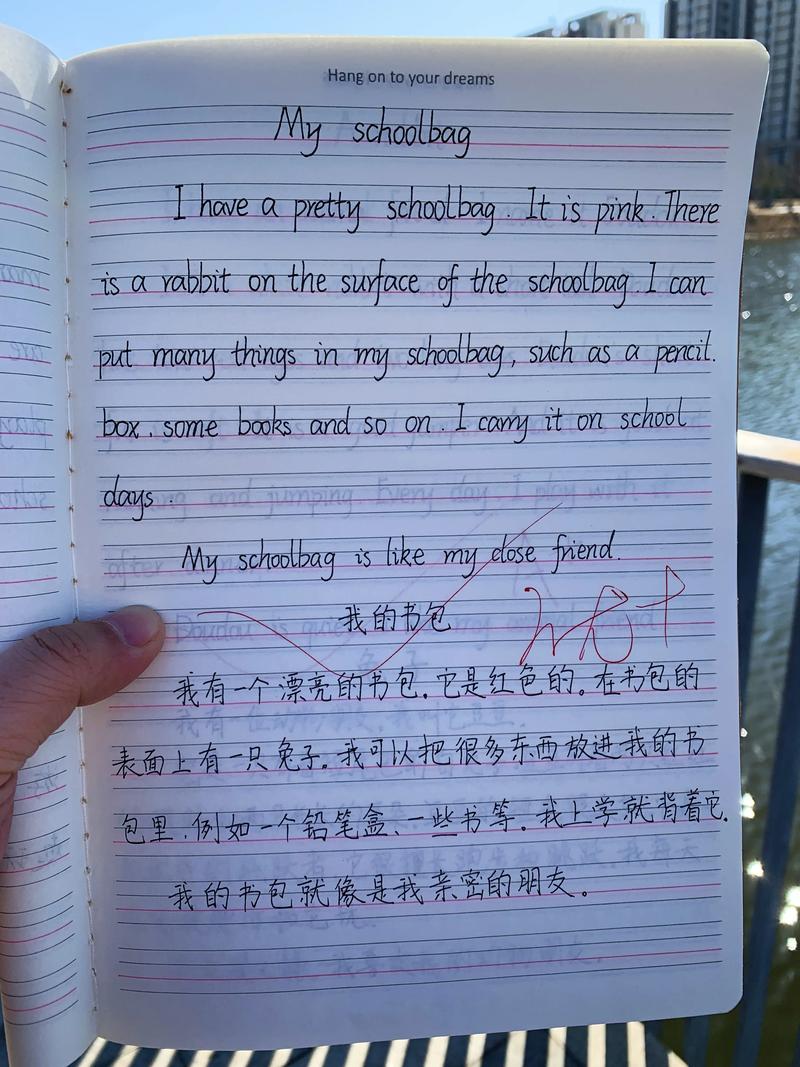 Hang on to your dreams
My schoolbag
I have a pretty schoolbag. It is pink. There
is a rabbit on the surface of the schoolbag I can
put many things in my schoolbag, such as a pencil.
box. some books and so on. I carry it on school
days.
My schoolbag is like my close friend.
我的书包
我有一个漂亮的书包。它是红色的。在书包的
表面上有一只兔子。我可以把很多东西放进我的书
包里,例如一个铅笔盒、一些书等。我上学就背着它。
我的书包就像是我亲密的朋友。